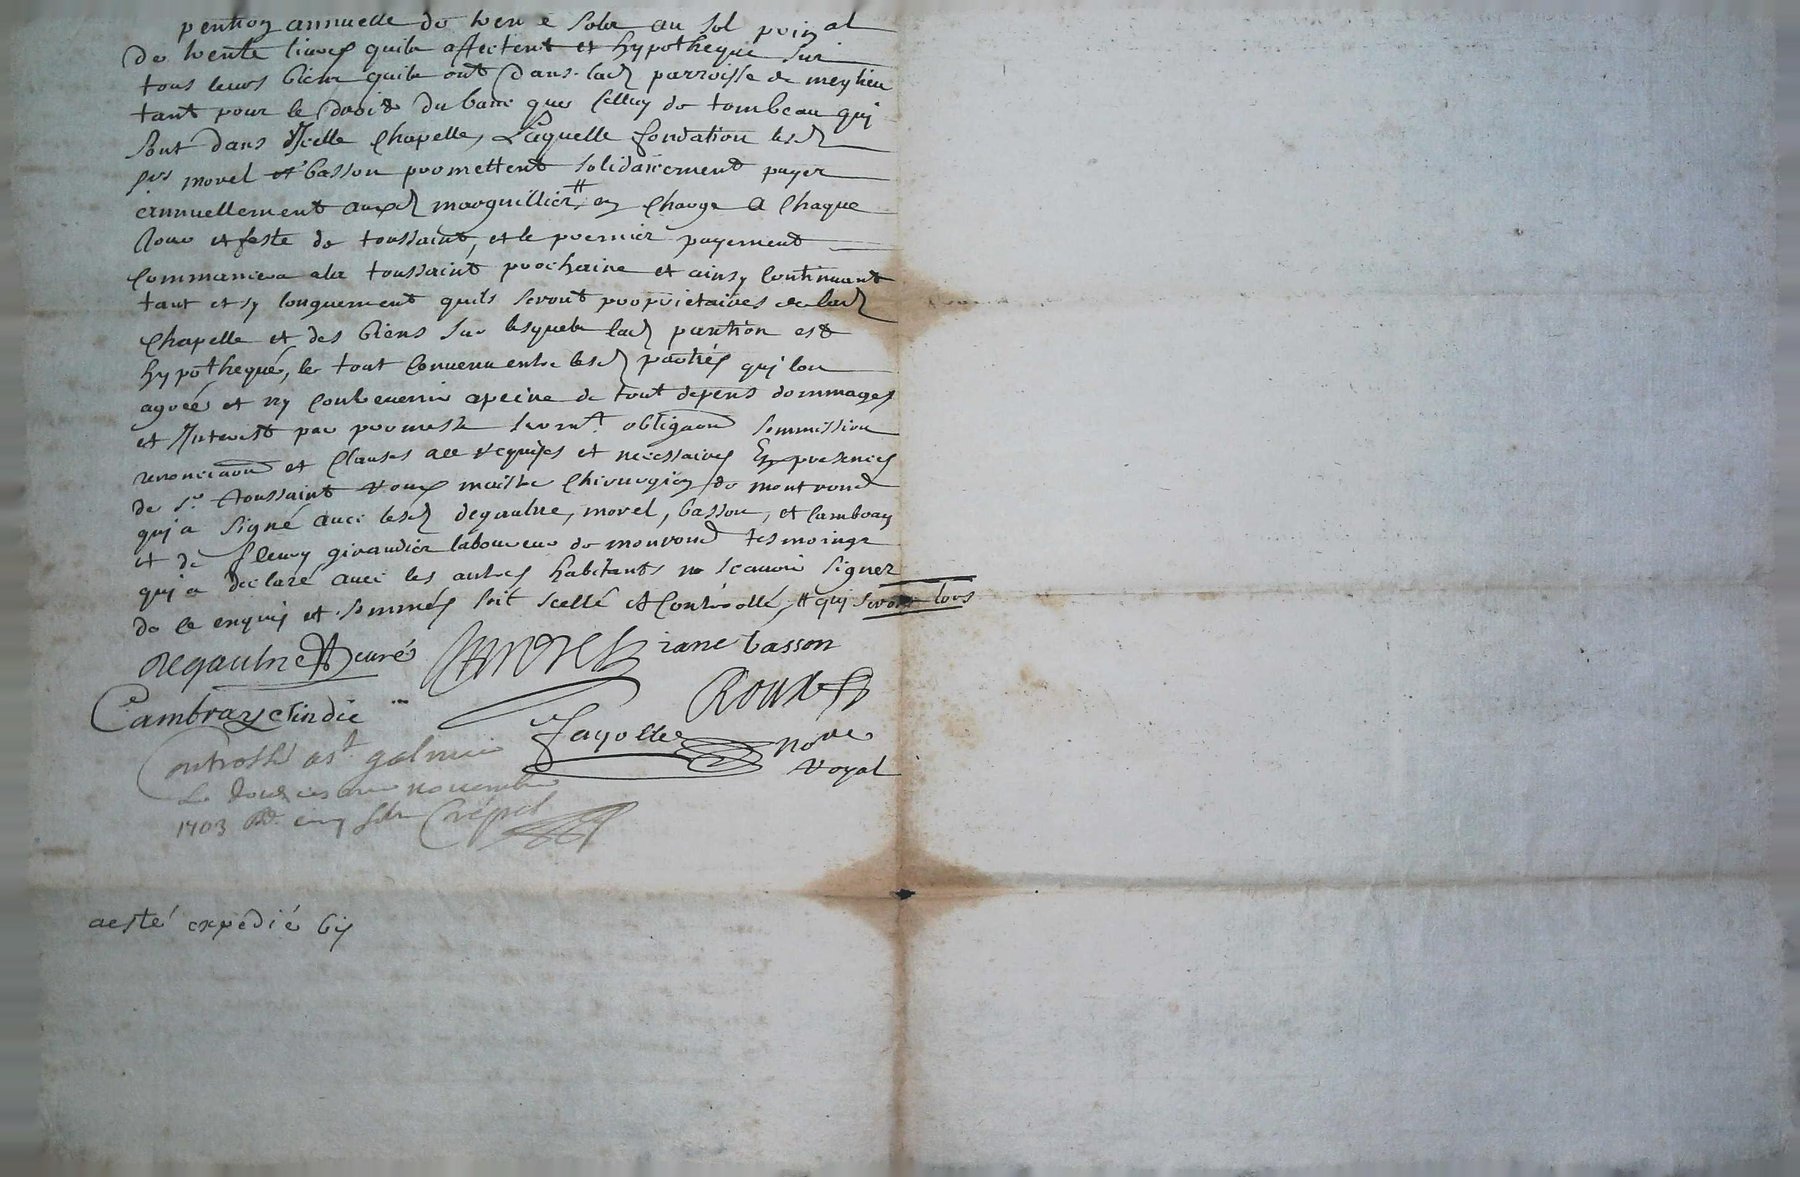 pention annuelle de trente solz au sol prin al
de trente livres quils affectent et hypotheque sur
tous leurs biens quils ont dans lad parroisse de meylieu
tant pour le droit du banc que celluy de tombeau qui
sont dans Icelle Chapelle, Laquelle fondation lesd
srs morel et basson promettent solidairement payer
annuellement auxd marguilliers # en charge a chaque
Jour et feste de toussaint, et le premier payement
Commancera a la toussaint prochaine et ainsy Continuant
tant et sy longuement quils seront proprietaires de lad
Chapelle et des biens sur lesquels lad pantion est
hypothequé, le tout Convenu entre lesd parties qui lon
agréé et ny Contrevenir a peine de tout depens dommages
et Interest par promesse serm.t obligaon sommission
renonciaon et Clauses a ce requises et necessaires En presences
de s.r toussaint roux maistre Chirurgien de montrond
qui a signé avec lesd degaulne, morel, basson, et Cambray
et de fleury giraudier laboureur de monrond tesmoings
qui a declaré avec les autres habitants ne scavoir signer
de ce enquis et sommés soit scellé et Controllé, # qui seront lors
Degaulne curé morel iane basson
Cambray cindic Roux
fayolle no.re
royal
Controllé a s.t galmier
Le douziesme novembre
1703 R. cinq sols Crépet
a esté expedié bis